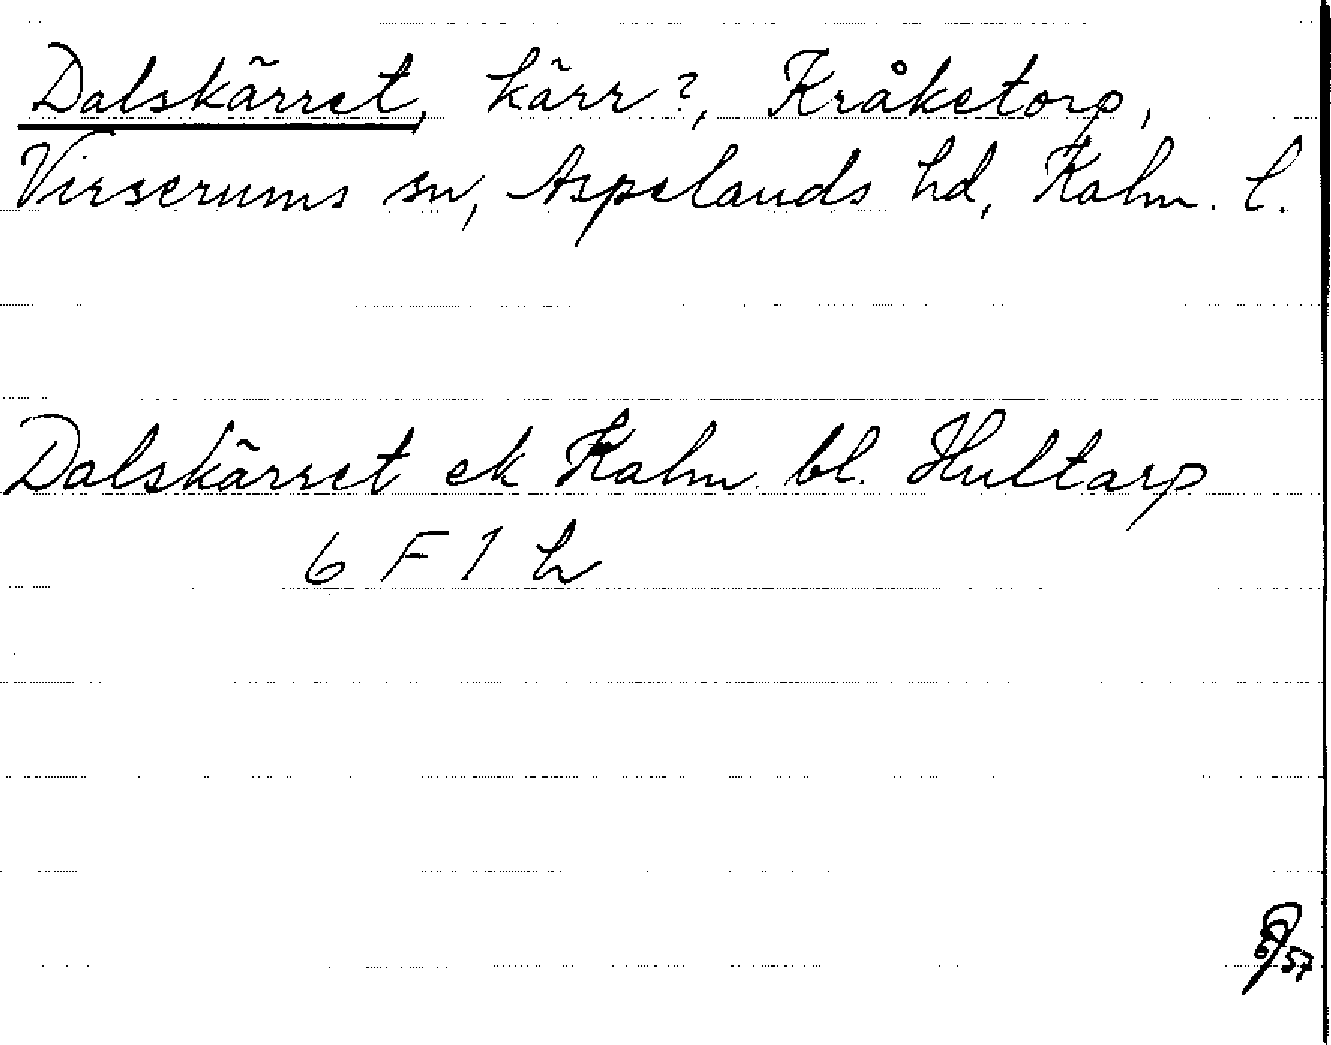 Dalskärret, kärr?, Kråketorp,
Virserums sn, Aspelands hd, Kalm. l.
Dalskärret ek Kalm. bl. Hultarp
6 F 1 h